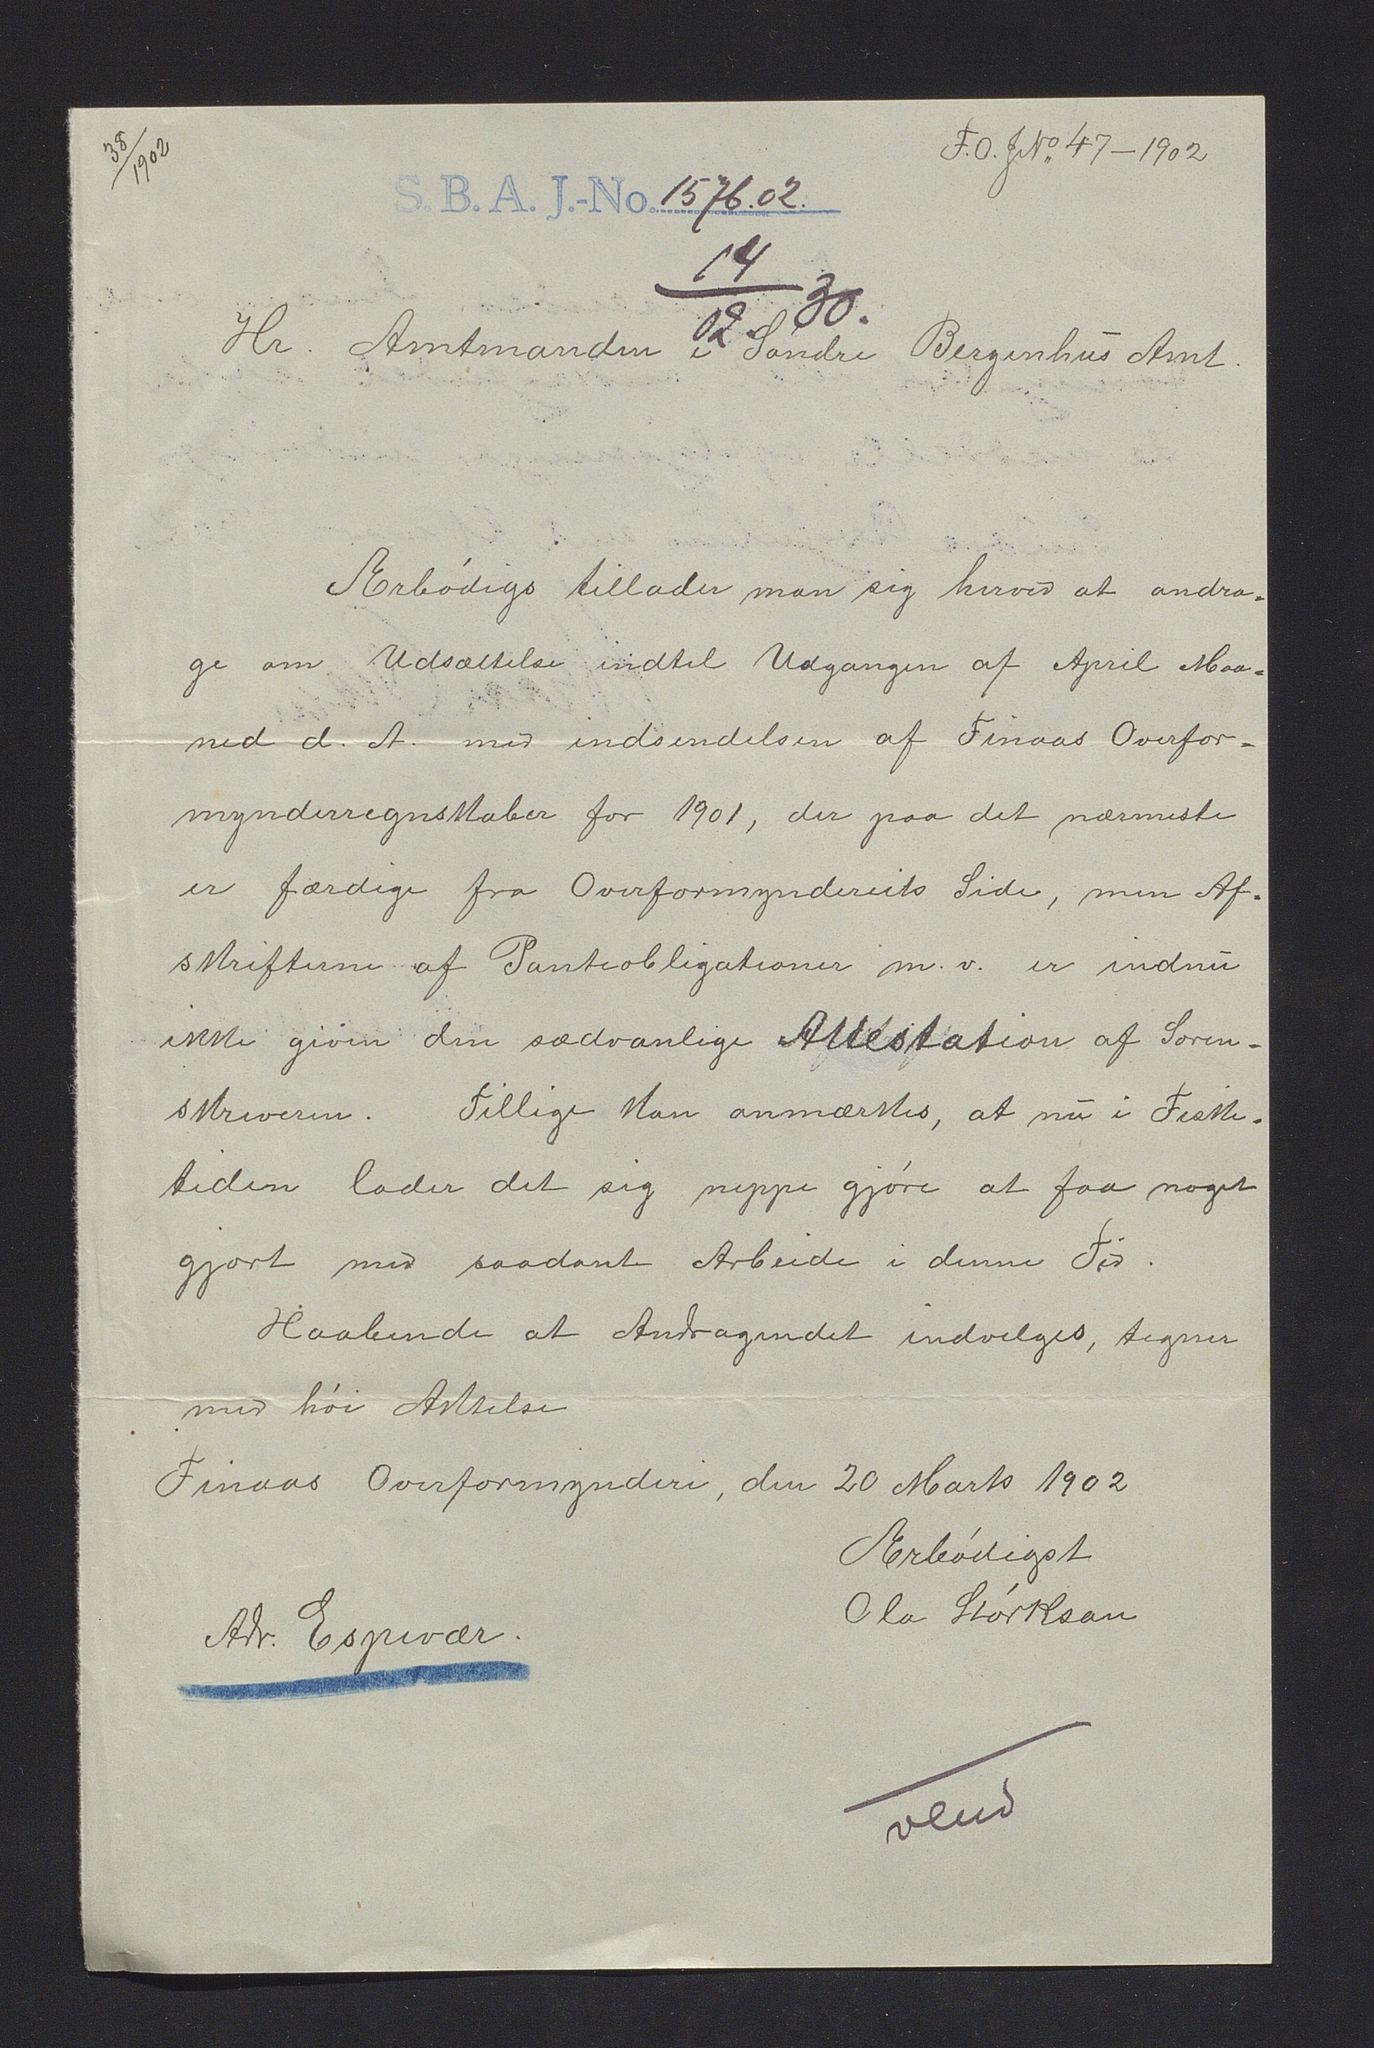 38/1902
F.O. J.No. 47-1902
S.B.A. J.-No. 1576.02.
14
12 30.
Hr. Amtmanden i Söndre Bergenhus Amt.
Ærbödigs tillader man sig herved at andra-
ge om Udsættelse indtil Udgangen af April Maa-
ned d. A. med indsendelsen af Finaas Overfor-
mynderregnskaber for 1901, der paa det nærmeste
er færdige fra Overformynderiets Side, men Af-
skrifterne af Panteobligationer m. v. er indnu
ikke given den sædvanlige Attestation af Soren-
skriveren. Tillige kan anmærkes, at nu i Fiske-
tiden lader det sig neppe gjöre at faa noget
gjort med saadant Arbeide i denne Tid.
Haabende at Andragendet indvelges, tegner
med höi Aktelse
Finaas Overformynderi, den 20 Marts 1902
Ærbödigst
Ola Störkson
Adr. Espevær.
vend